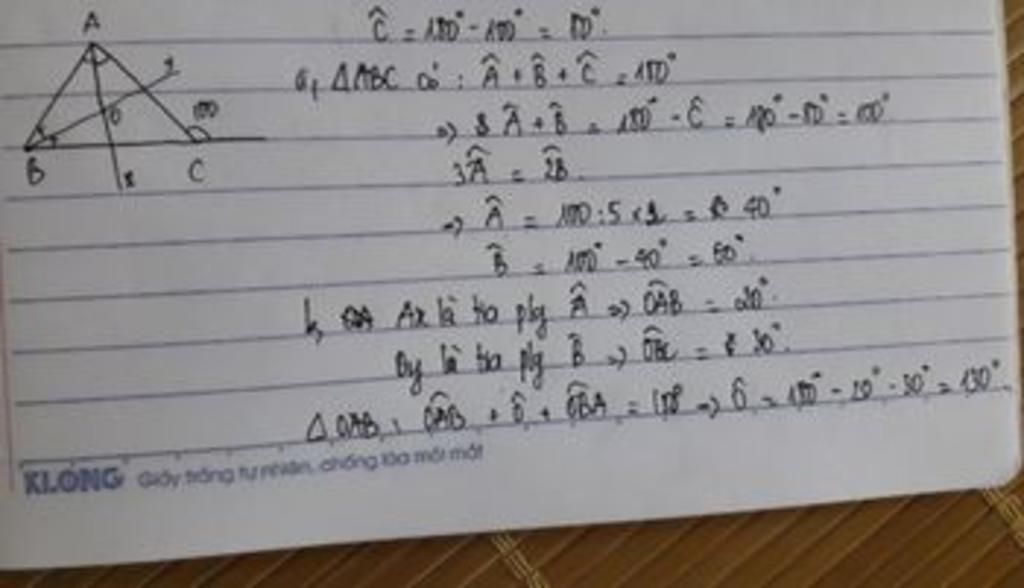 A
y
O
100
B
x
C
Ĉ = 180° - 100° = 80°.
a, ΔABC có : Â + B̂ + Ĉ = 180°
=> Â + B̂ = 180° - Ĉ = 180° - 80° = 100°
3Â = 2B̂.
=> Â = 100 : 5 x 2 = 40°
B̂ = 100° - 40° = 60°.
b, Ax là tia plg Â => OAB = 20°.
By là tia plg B̂ => OBC = 30°.
ΔOAB : OAB + Ô + OBA = 180° => Ô = 180° - 20° - 30° = 130°.
KLONG Giấy trắng tự nhiên, chống lóa mỏi mắt